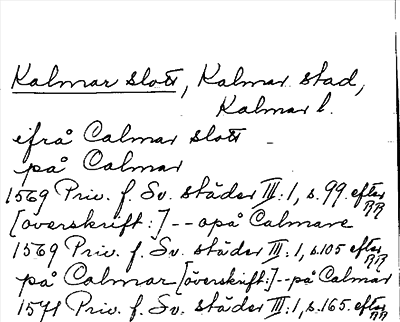 Kalmar slott, Kalmar stad,
Kalmar l.
ifrå Calmar slott
på Calmar
1569 Priv. f. Sv. städer III:1, s. 99 efter RR
[överskrift:] -- opå Calmare
1569 Priv. f. Sv. städer III:1, s. 105 efter RR
på Calmar [överskrift:] -- på Calmar
1571 Priv. f. Sv. städer III:1, s. 165. efter RR